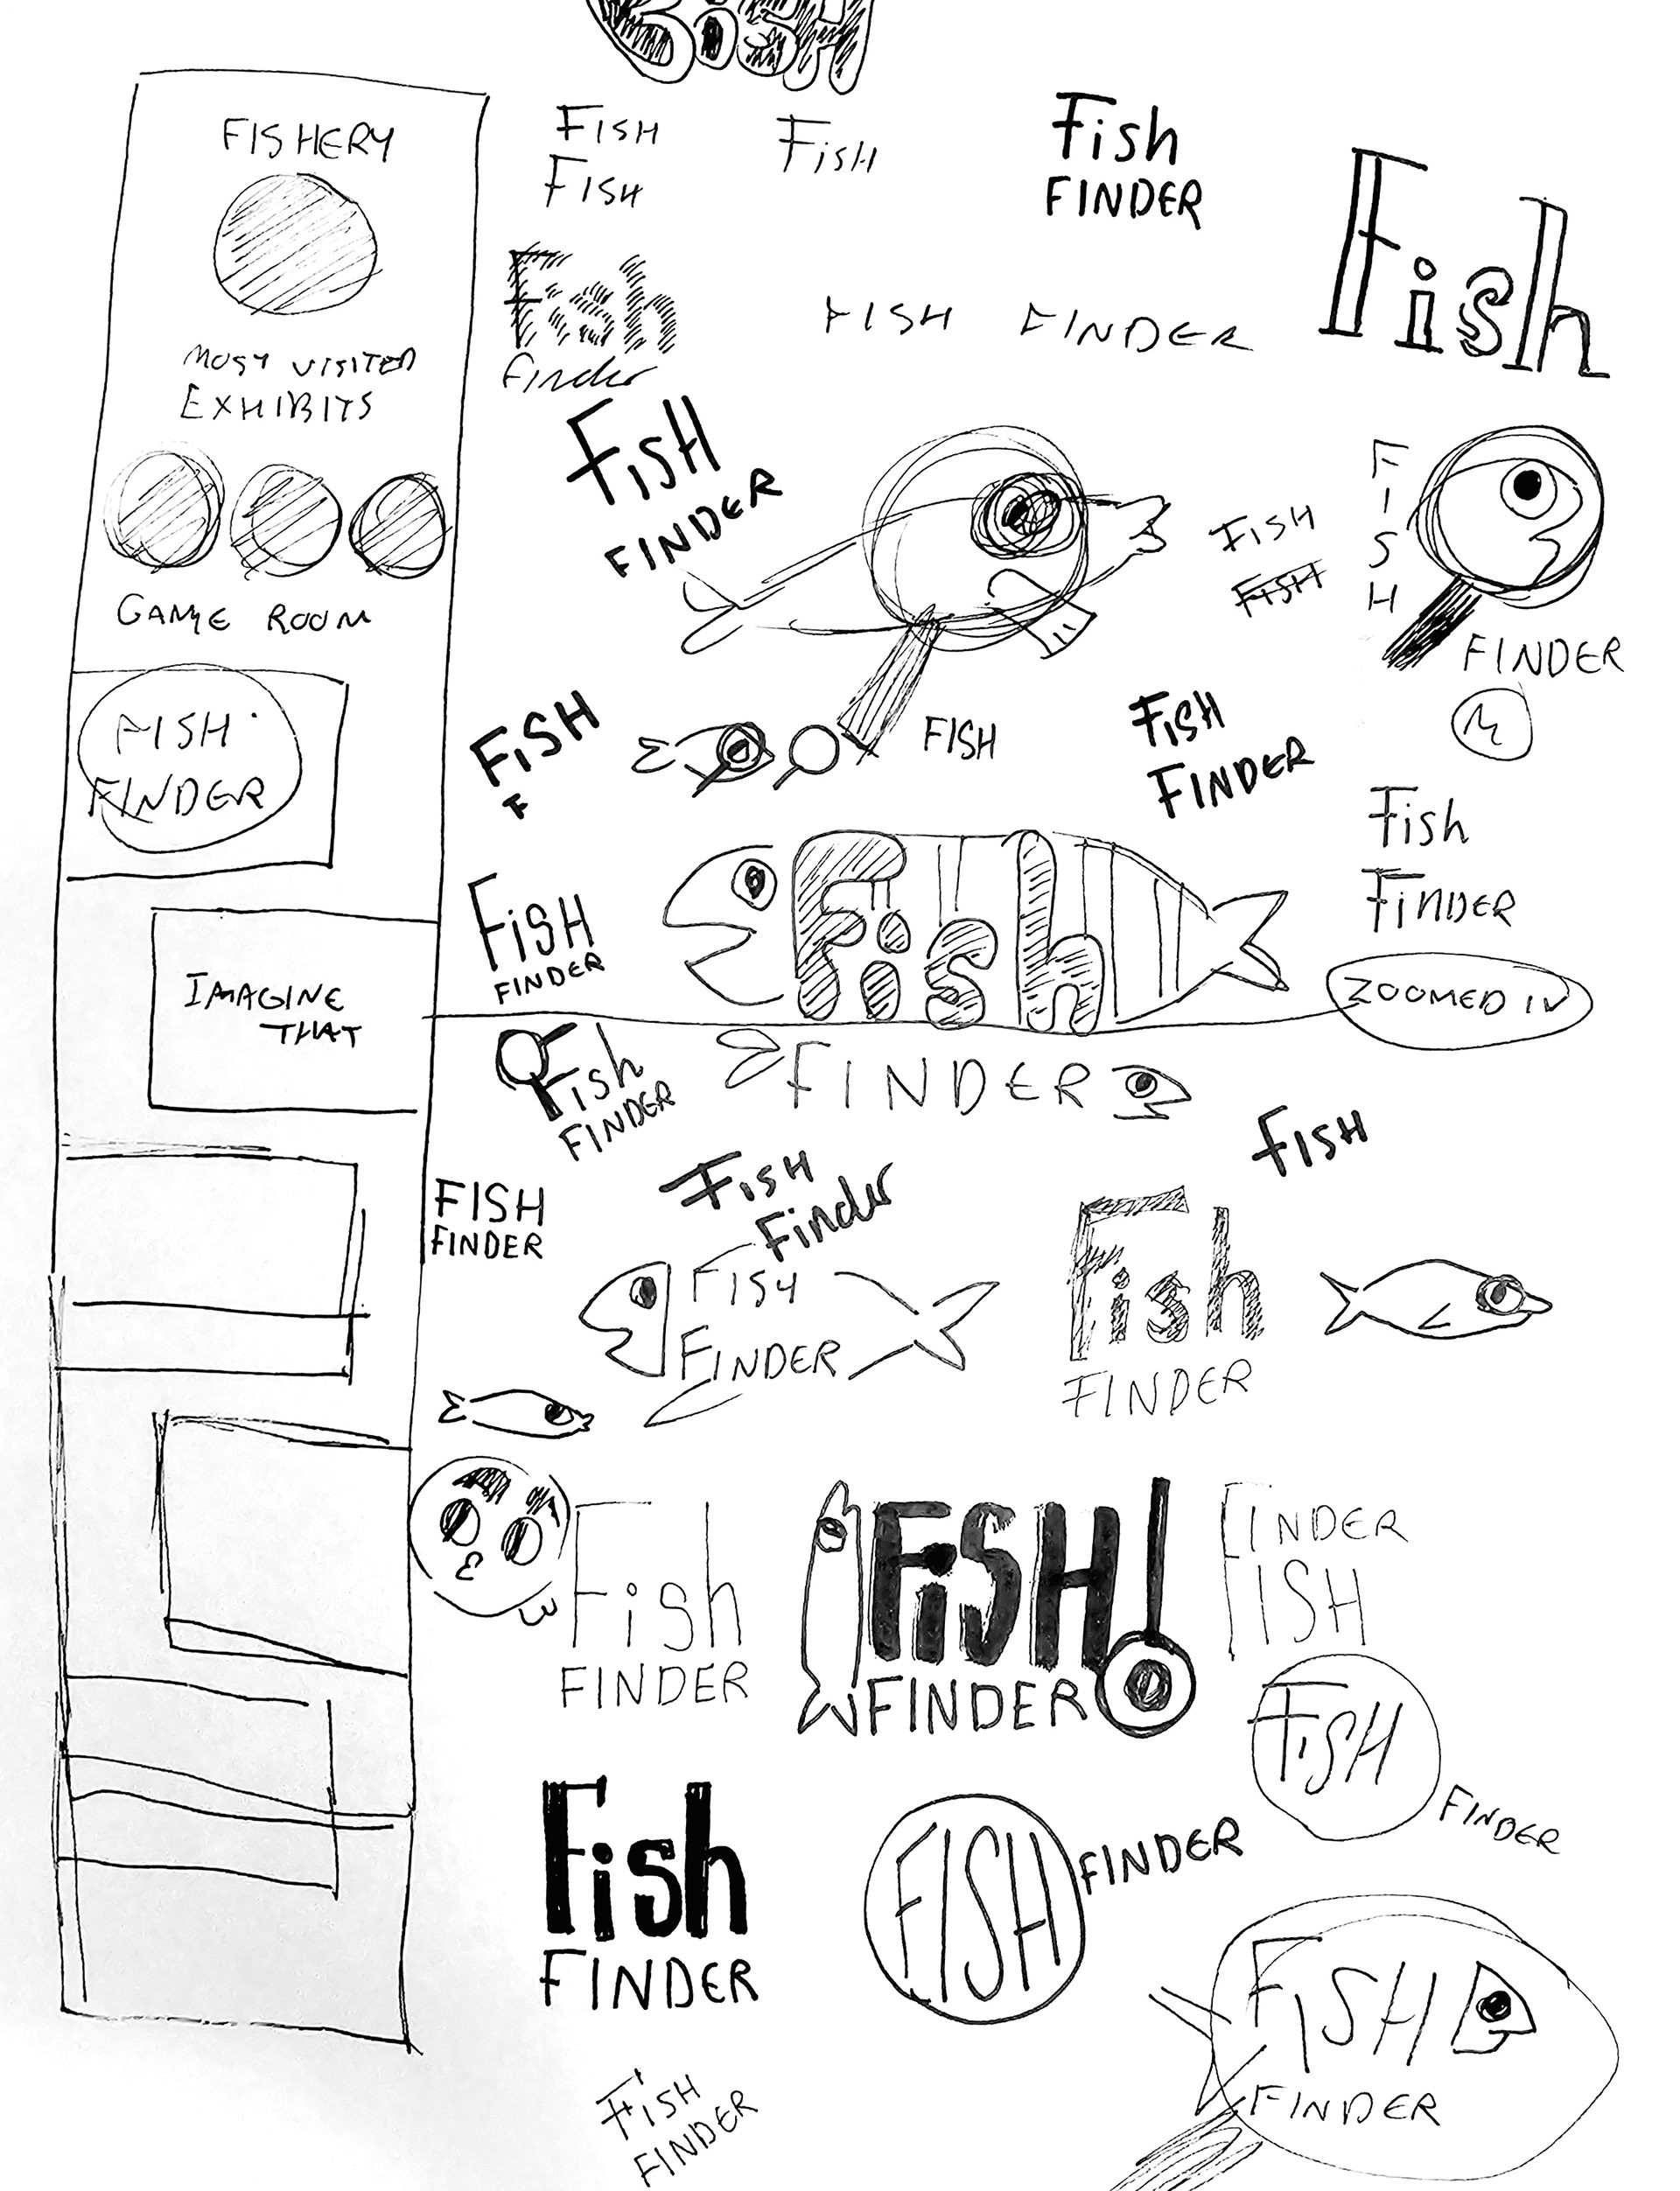 FisH
FISHERY
MOST VISITED
EXHIBITS
GAME ROOM
FISH
FINDER
IMAGINE
THAT
FISH
FISH
FisH
Fish
FINDER
Fish
Fish
finder
FISH FINDER
FisH
FINDER
FISH
FISH
FISH
FINDER
M
FiSH
F
FISH
FiSH
FINDER
Fish
FINDER
FiSH
FINDER
Fish
ZOOMED IN
FINDER
Fish
FINDER
FiSH
FISH
FINDER
FisH
Finder
FISH
FINDER
Fish
FINDER
Fish
FINDER
FiSH!
FINDER
FINDER
FISH
FiSH
FINDER
Fish
FINDER
FISH
FINDER
FiSH
FINDER
FISH
FINDER